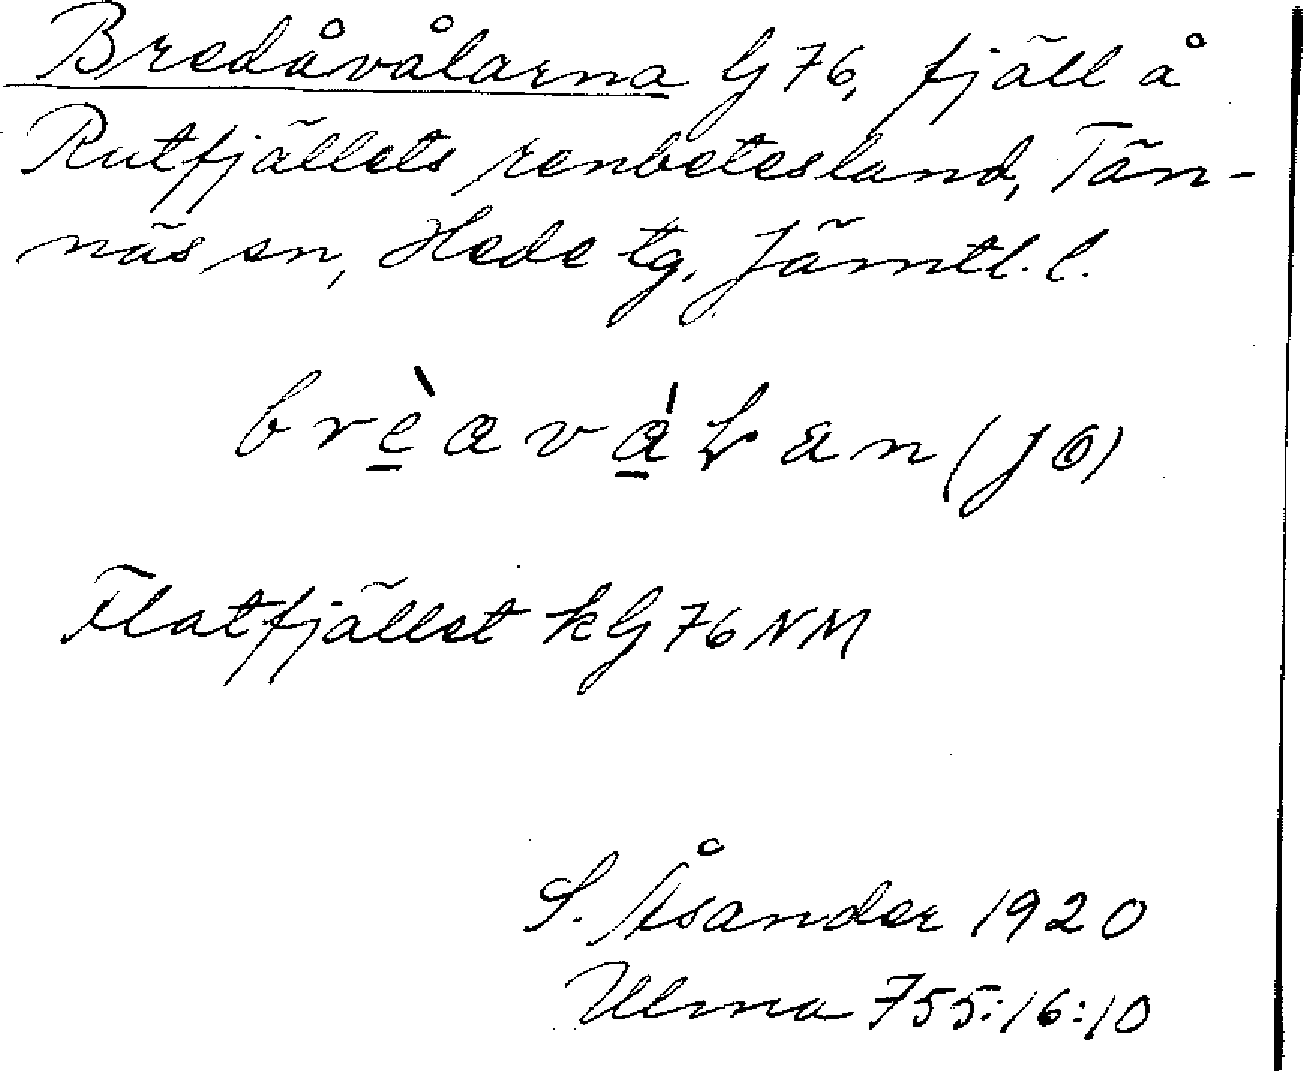 Bredåvålarna G 76, fjäll å
Rutfjällets renbetesland, Tän-
näs sn, Hede tg. Jämtl. l.
(JÖ)
Flatfjället kG 76 NM
S. Åsander 1920
Ulma 755:16:10